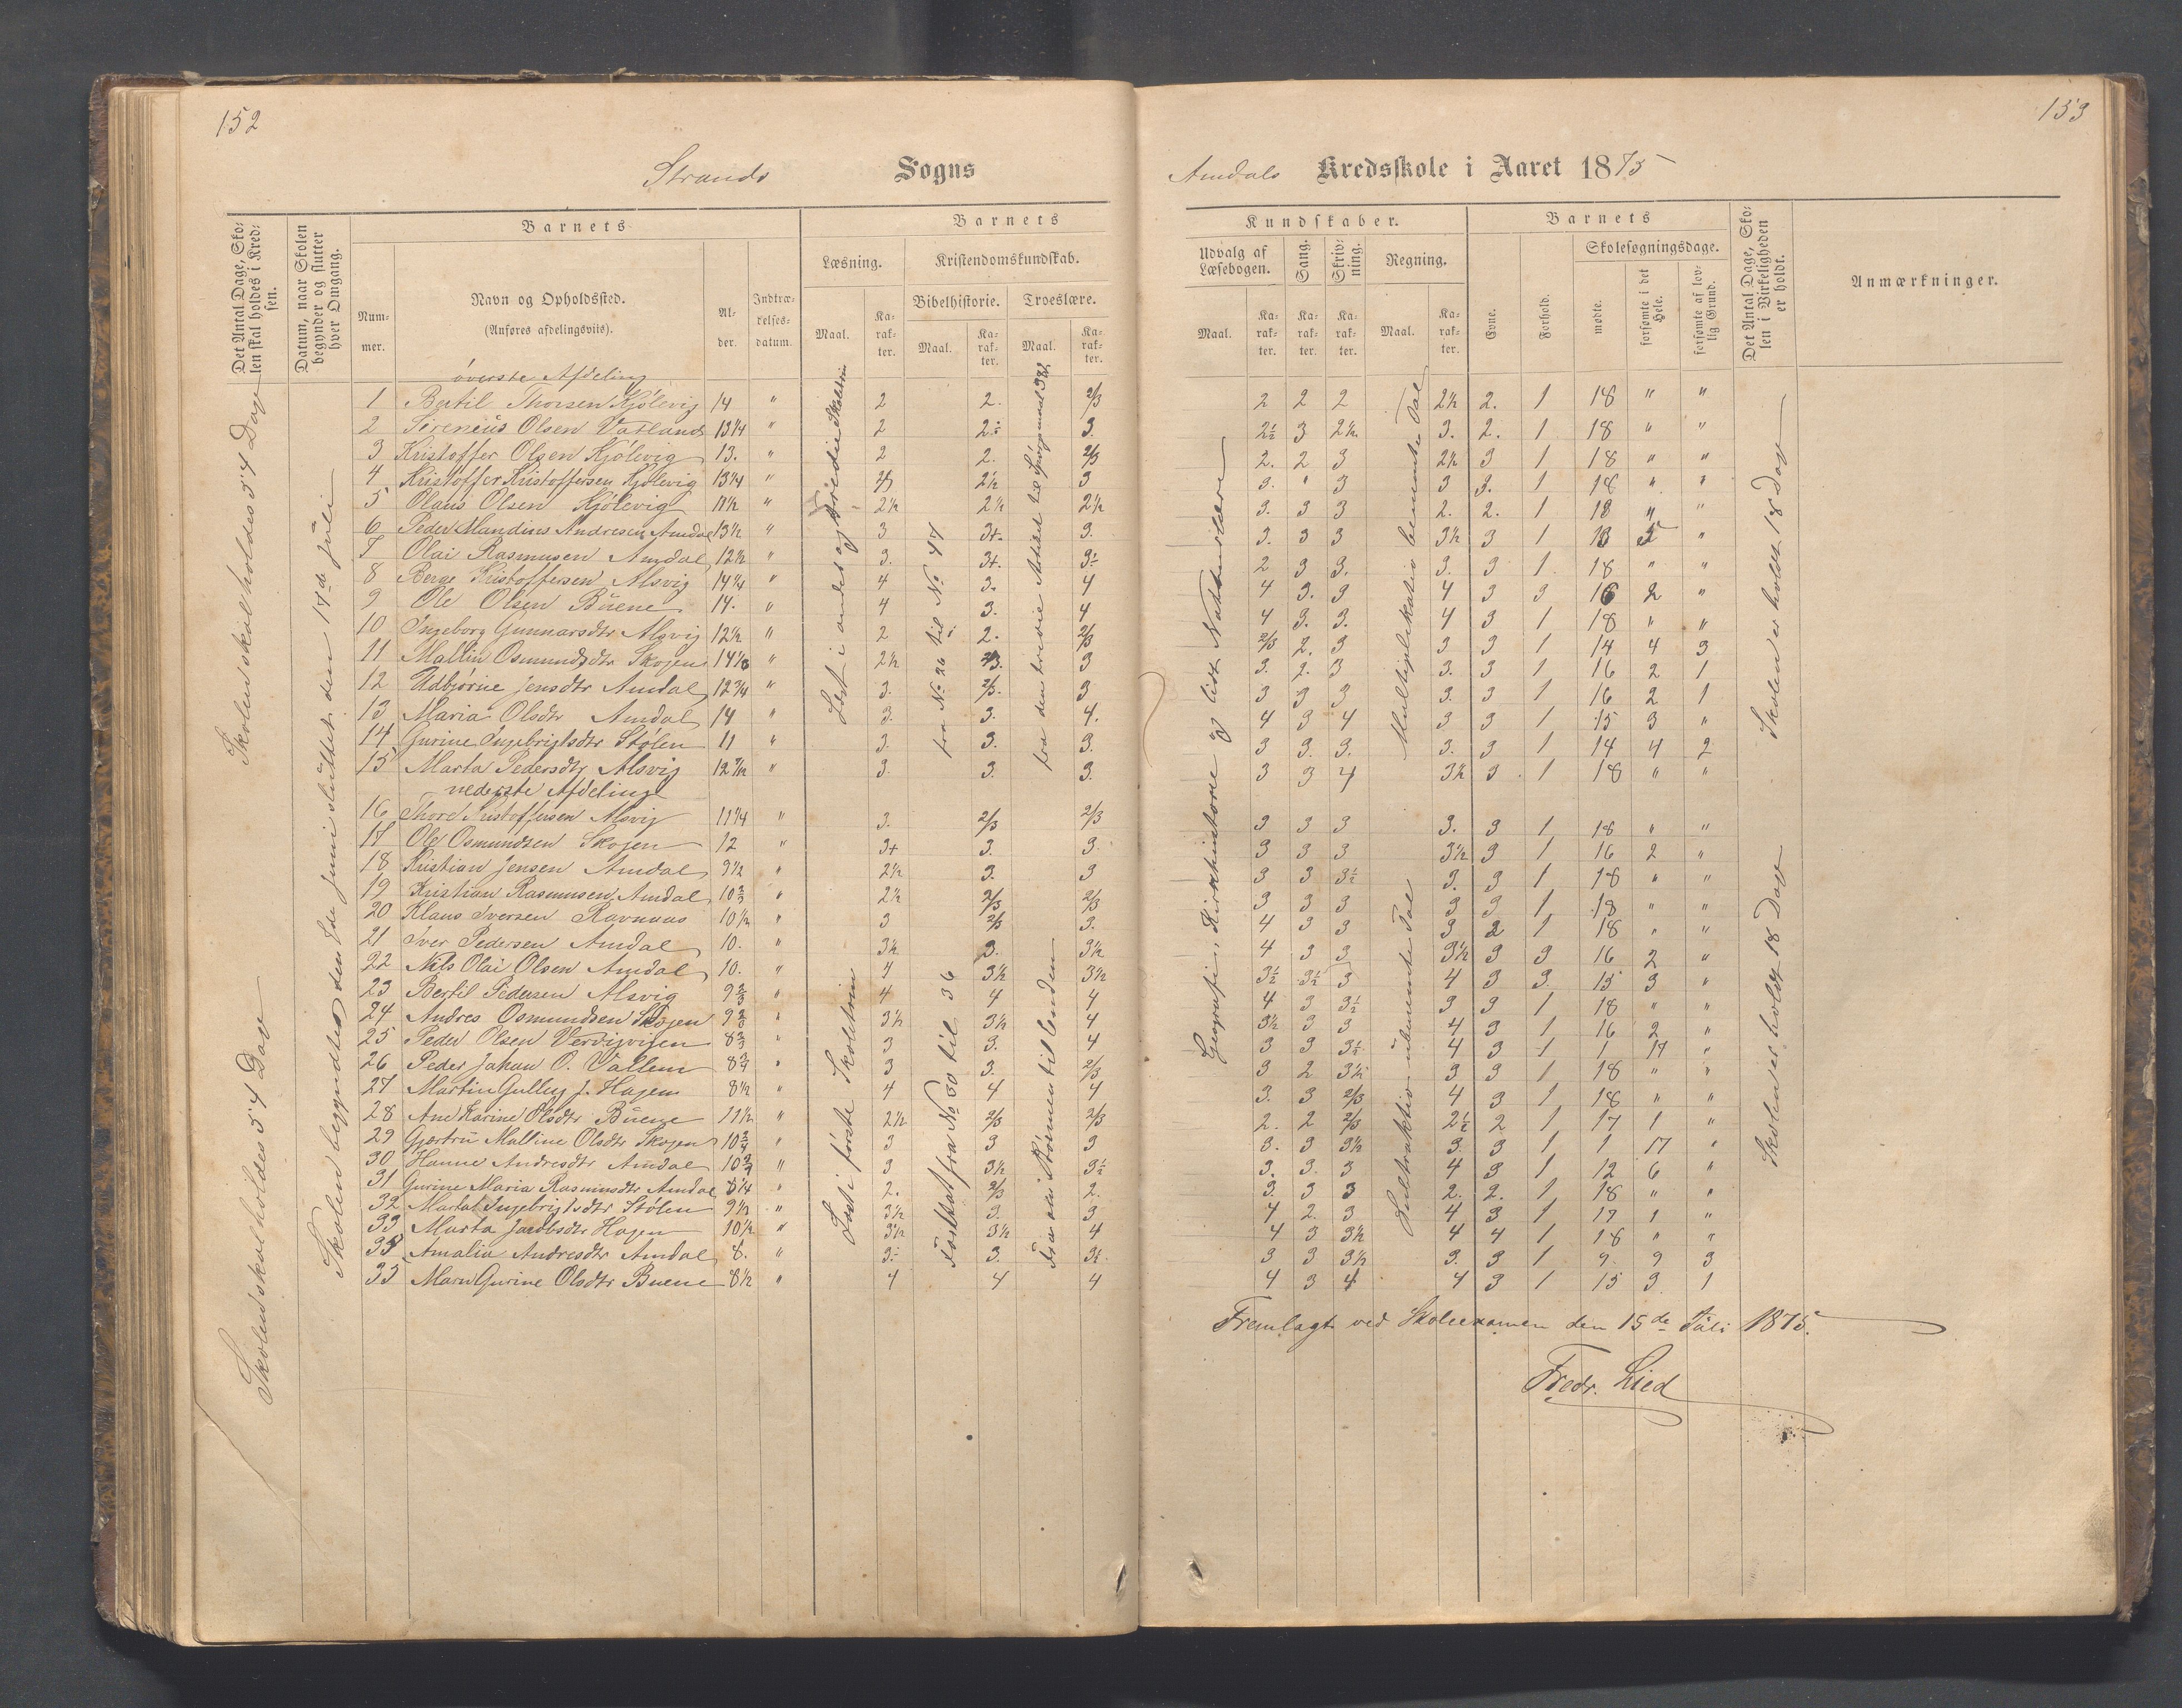 152
153
Strands Sogns
Amdals Kredsskole i Aaret 1875
Det Antal Dage, Skolen skal holdes i Kredsen.
Datum, naar Skolen begynder og slutter hver Omgang.
Barnets
Nummer.
Navn og Opholdssted.
(Anføres afdelingsvits).
Alder.
Indtrædelsesdatum.
Barnets
Læsning.
Kristendomskundskab.
Bibelhistorie.
Troeslære.
Maal.
Karakter.
Maal.
Karakter.
Maal.
Karakter.
Kundskaber.
Udvalg af Læsebogen.
Sang.
Skrivning.
Regning.
Maal.
Karakter.
Karakter.
Karakter.
Maal.
Karakter.
Barnets
Evne.
Forhold.
Skolesøgningsdage.
mødte.
forsømte i det Hele.
forsømte af lovlig Grund.
Det Antal Dage, Skolen i Virkeligheden er holdt.
Anmærkninger.
Skolen skal holdes 54 Dage
Skolen skal holdes 54 Dage
Læst i andet og tredie Skoletrin
fra No 26 til No 47
Læst i første Skoletrin
Fortsat fra No 30 til 36
Geografi, Kirkehistorie og lidt Naturlære
Multiplikation benævnte Tal
Subtraktion ubenævnte Tal
Skolen er holdt 18 Dage
Skolen er holdt 18 Dage
øverste Afdeling
1 Bertil Thorsen Kjølevig 14 " 2 2. 2/3 2 2 2 2½ 2. 1 18 " "
2 Sireneus Olsen Vatland 13¼ " 2 2÷ 3. 2½ 3 2½. 3. 2. 1 18 " "
3 Kristoffer Olsen Kjølevig 13. " 2 2. 2/3 2. 2 3 2½ 3 1 18 " "
4 Kristoffer Kristoffersen Kjølevig 13¼ " 2/3 2½ 3 3. " 3 3 3. 1 18 " "
5 Olaus Olsen Kjølevig 11½ " 2½ 2½ 2½ 3. 3 3 2. 2. 1 18 " "
6 Peder Mandius Andresen Amdal 13½ " 3 3+. 3. 3. 3 3 3½ 3 1 13 5 "
7 Olai Rasmusen Amdal 12½ " 3. 3+. 3÷ 2 3 3. 3. 3 1 18 " "
8 Berge Kristoffersen Alsvig 14¼ " 4 3. 4 4 3. 3 4 3 3 16 2 "
9 Ole Olsen Buene 14. " 4 3. 4 4 3. 3. 4 3 1 18 " "
10 Ingeborg Gunnarsdtr Alsvig 12½ " 2 2. 2/3 2/3 2. 3 3 3 1 14 4 3
11 Mallin Osmundsdtr Skogen 14⅙ " 2½ 2/3. 3 3. 2. 3 3. 3 1 16 2 1
12 Udbjørine Jensdtr Amdal 12¾ " 3. 2/3. 3 3 3 3 3. 3 1 16 2 1
13 Maria Olsdtr Amdal 14 " 3. 3. 4. 4 3 4 3 3 1 15 3 "
14 Gurine Ingebrigtsdtr Stølen 11 " 3. 3. 3. 3 3. 3. 3. 3 1 14 4 2
15 Marta Pedersdtr Alsvig " 3. 3. 3. 3 3 4 3½ 3 1 18 " "
nederste Afdeling
16 Thore Kristoffersen Alsvig 11¼ " 3. 2/3 2/3 3 3 3 3. 3 1 18 " "
17 Ole Osmundsen Skogen 12 " 3+ 3. 3 3 3 3 3½ 3 1 16 2 "
18 Kristian Jensen Amdal 9½ " 2½ 3. 3 3 3 3½ 3. 3 1 18 " "
19 Kristian Rasmusen Amdal 10⅔ " 2½ 2/3 2/3 3 3 3 3 3 1 18 " "
20 Klaus Iversen Ravnaas 10½ " 3 2/3 3. 4 3 3 3 2 1 18 " "
21 Iver Pedersen Amdal 10. " 3½ 3. 3½ 4 3 3 3½ 3 3 16 2 "
22 Nils Olai Olsen Amdal 10. " 4 3½ 3½ 3½ 3½ 3 4 3 3 15 3 "
23 Bertil Pedersen Alsvig 9⅔ " 4 4 4 4 3 3½ 3 3 1 18 " "
24 Andres Osmundsen Skogen " 3½ 3½ 4 3½ 3 3 4 3 1 16 2 "
25 Peder Olsen 8⅔ " 3 3. 4 3 3 3½ 4 3 1 1 17 "
26 Peder Johan O. Vallem 8¾ " 3 3. 2/3 3 2 3½ 3 3 1 18 " "
27 Martin Gulleg J. Hagen 8½ " 4 4 4 3. 3 2/3 4 3 1 18 " "
28 Ane Karine Olsdtr Buene 11½ " 2½ 2/3 2/3 2. 2 2/3 2½ 2 1 17 1 "
29 Gjertrü Malline Olsdtr Skogen 10¾ " 3 3 3 3. 3 3½ 3. 3 1 1 17 "
30 Hanne Andresdtr Amdal " 3 3½ 3½ 3. 3. 3 4 3 1 12 6 "
31 Gurine Maria Rasmusdtr Amdal 8¼ " 2. 2/3 2. 3. 3 3 2. 2. 1 18 " "
32 Marta Ingebrigtsdtr Stølen 9⅓ " 3½ 3. 3 4 2. 3 4 3 1 17 1 "
33 Marta Jacobsdtr Hagen 10½ " 3½ 3½ 4 4 3 3½ 4 4 1 18 " "
Amalia Andresdtr Amdal 8. " 3÷ 3. 3 3 3½ 3. 3 1 9. 9 3
Gurine Olsdtr Buene 8½ " 4 4 4 4 3 4 4 3 1 15 3 1
Fremlagt ved Skoleexamen den 15de Juli 1875.
Fredr. Lied